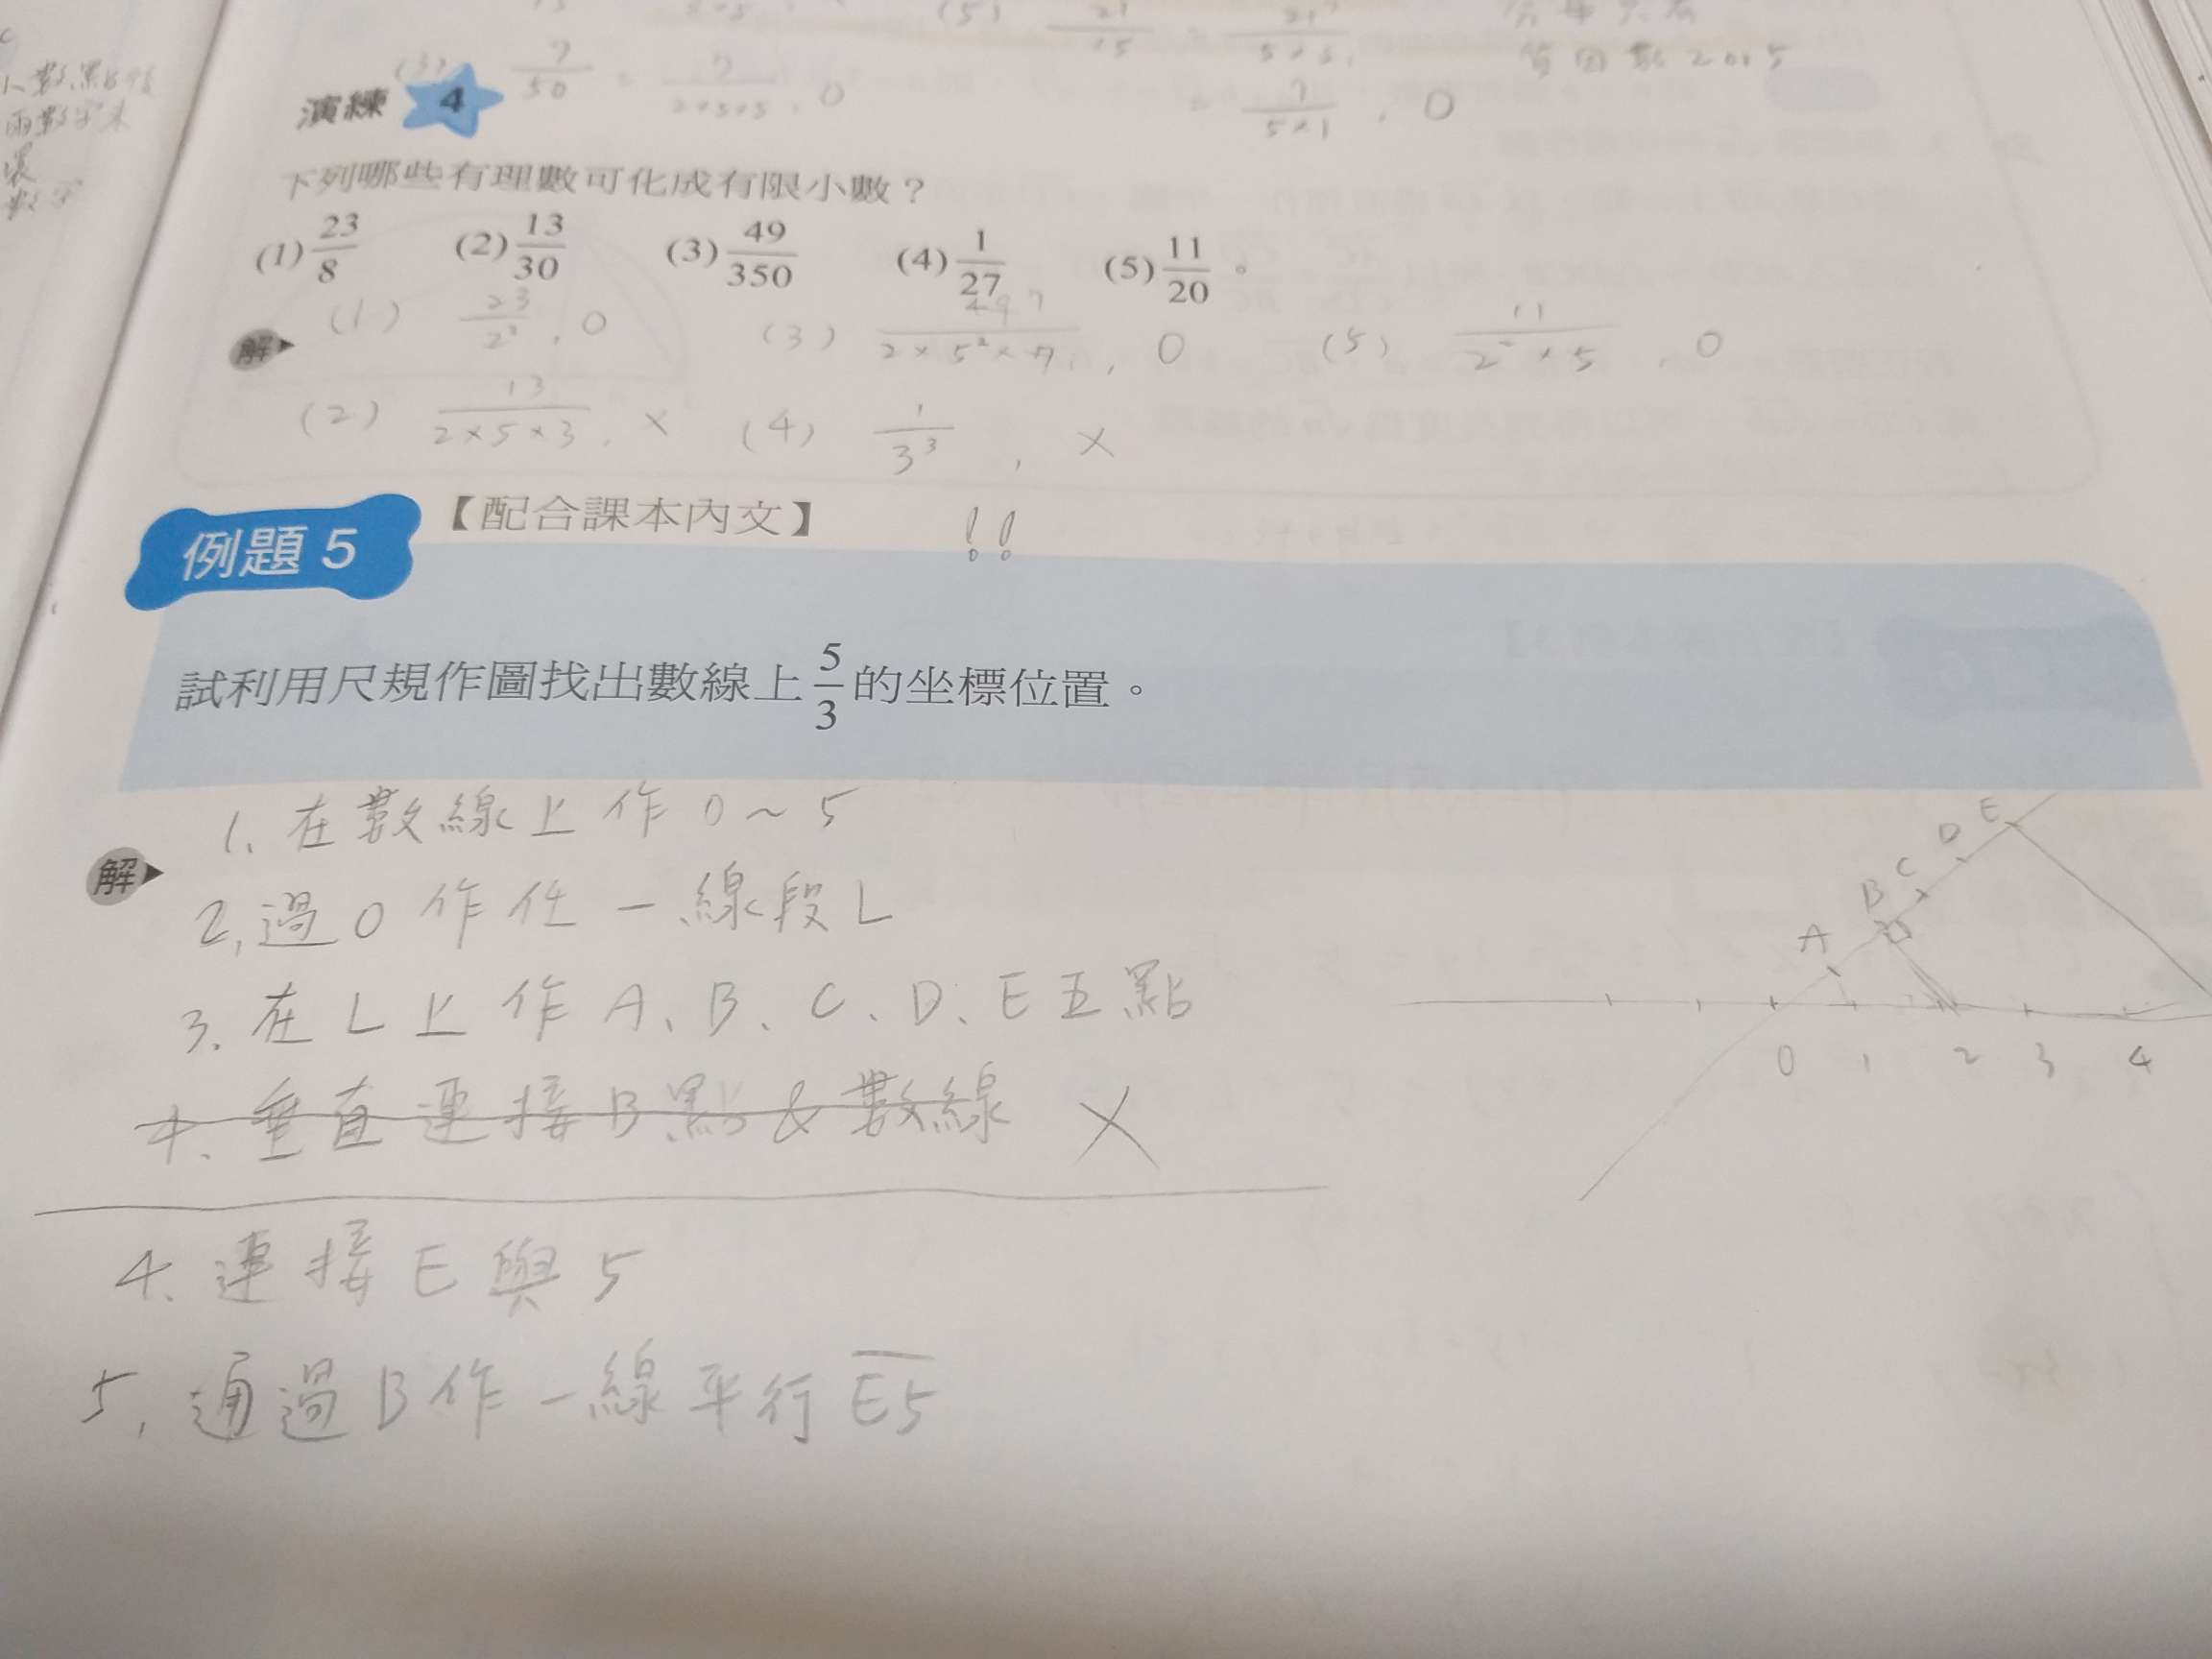 數字
(5) 21/15
質因數2or5
(3) 7/50 = 7/2×5×5, O
= 7/5×1, O
演練 4
下列哪些有理數可化成有限小數？
(1) 23/8 (2) 13/30 (3) 49/350 (4) 1/27 (5) 11/20。
解
(1) 23/2³, O (3) 49 7/2×5²×7, O (5) 11/2²×5, O
(2) 13/2×5×3, × (4) 1/3³, ×
例題 5 【配合課本內文】 !!
試利用尺規作圖找出數線上 5/3 的坐標位置。
解
1. 在數線上作0~5
2. 過0作任一線段L
3. 在L上作A、B、C、D、E五點
4. 垂直連接B點&數線 ×
4. 連接E與5
5. 通過B作一線平行E̅5̅
A B C D E
0 1 2 3 4